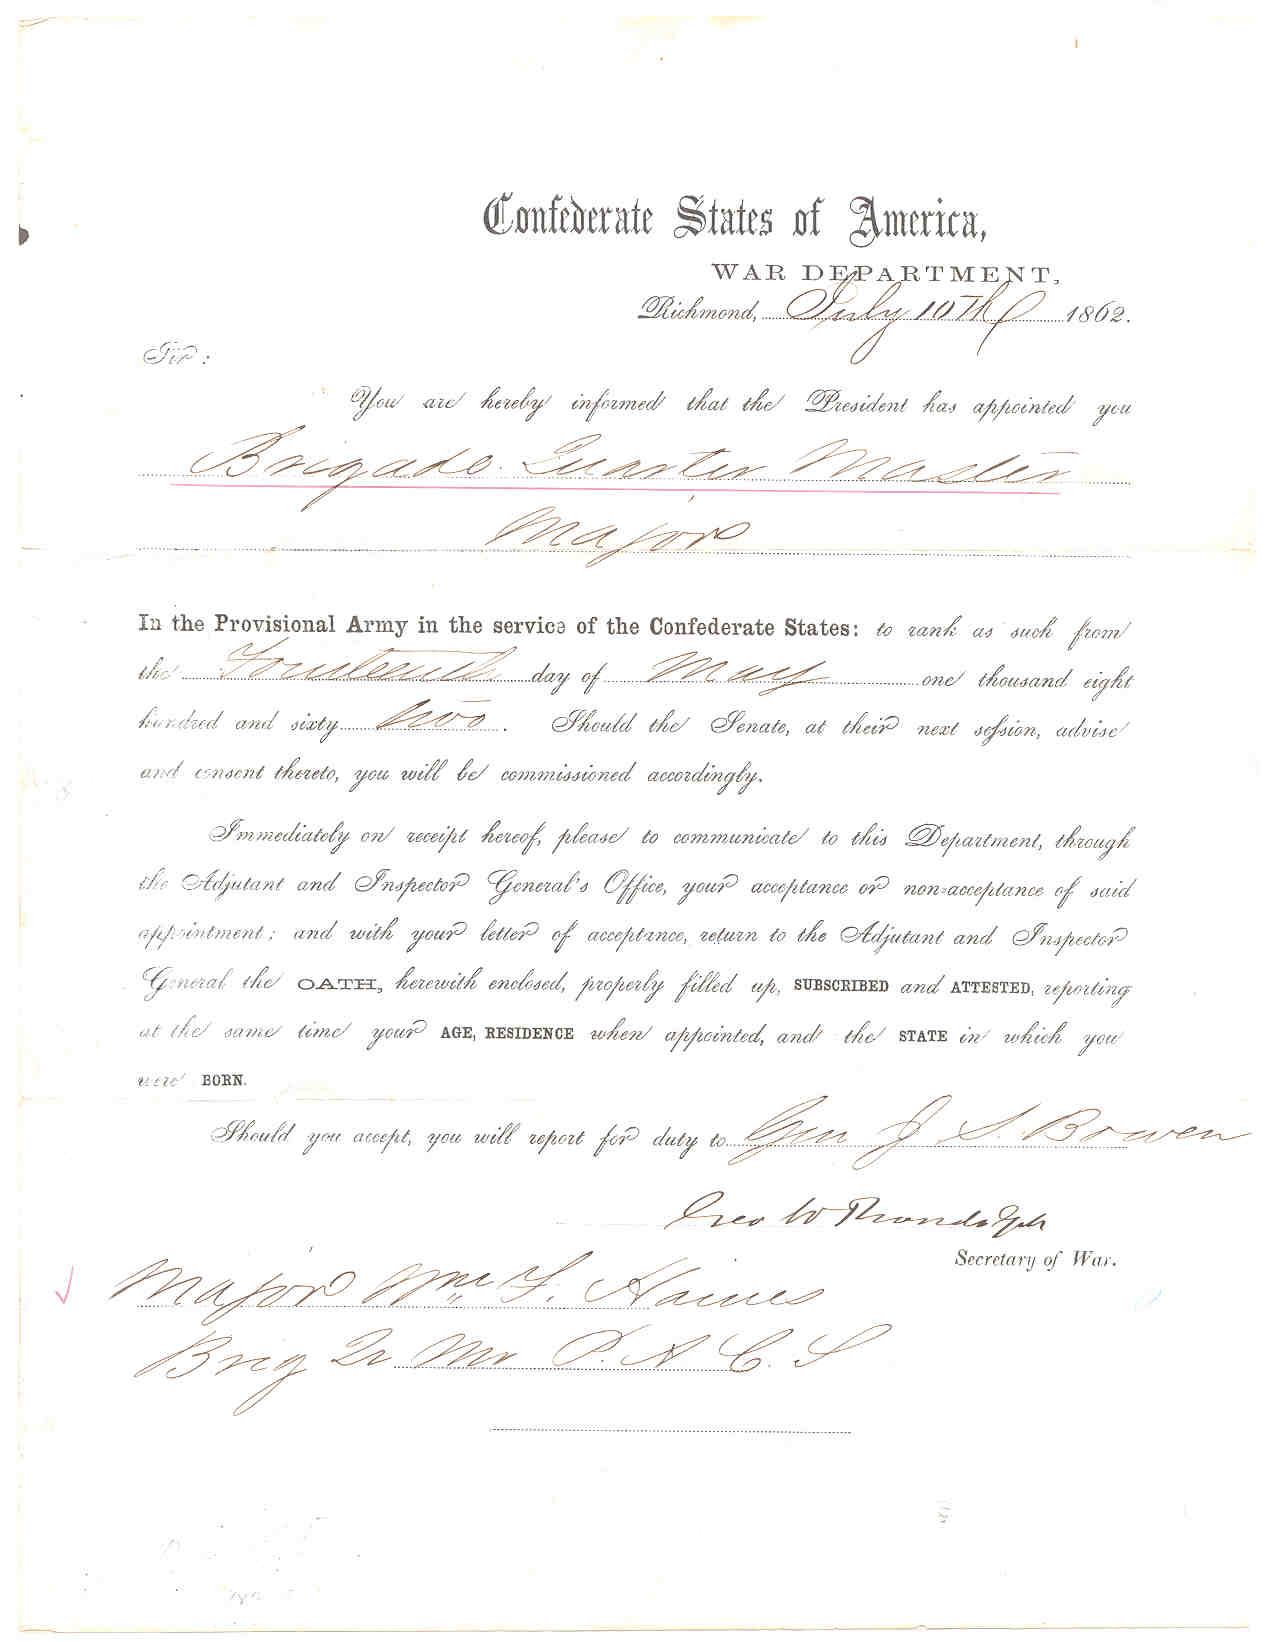 Confederate States of America,
WAR DEPARTMENT,
Richmond, July 10th 1862.
Sir:
You are hereby informed that the President has appointed you
Brigade Quarter Master
Major
In the Provisional Army in the service of the Confederate States: to rank as such from
the Fourteenth day of May one thousand eight
hundred and sixty two. Should the Senate, at their next session, advise
and consent thereto, you will be commissioned accordingly.
Immediately on receipt hereof, please to communicate to this Department, through
the Adjutant and Inspector General's Office, your acceptance or non-acceptance of said
appointment; and with your letter of acceptance, return to the Adjutant and Inspector
General the OATH, herewith enclosed, properly filled up, SUBSCRIBED and ATTESTED, reporting
at the same time your AGE, RESIDENCE when appointed, and the STATE in which you
were BORN.
Should you accept, you will report for duty to Gen J. S. Bowen
Geo W Randolph
Secretary of War.
Major Wm F. Haines
Brig Qr Mr P. A. C. S